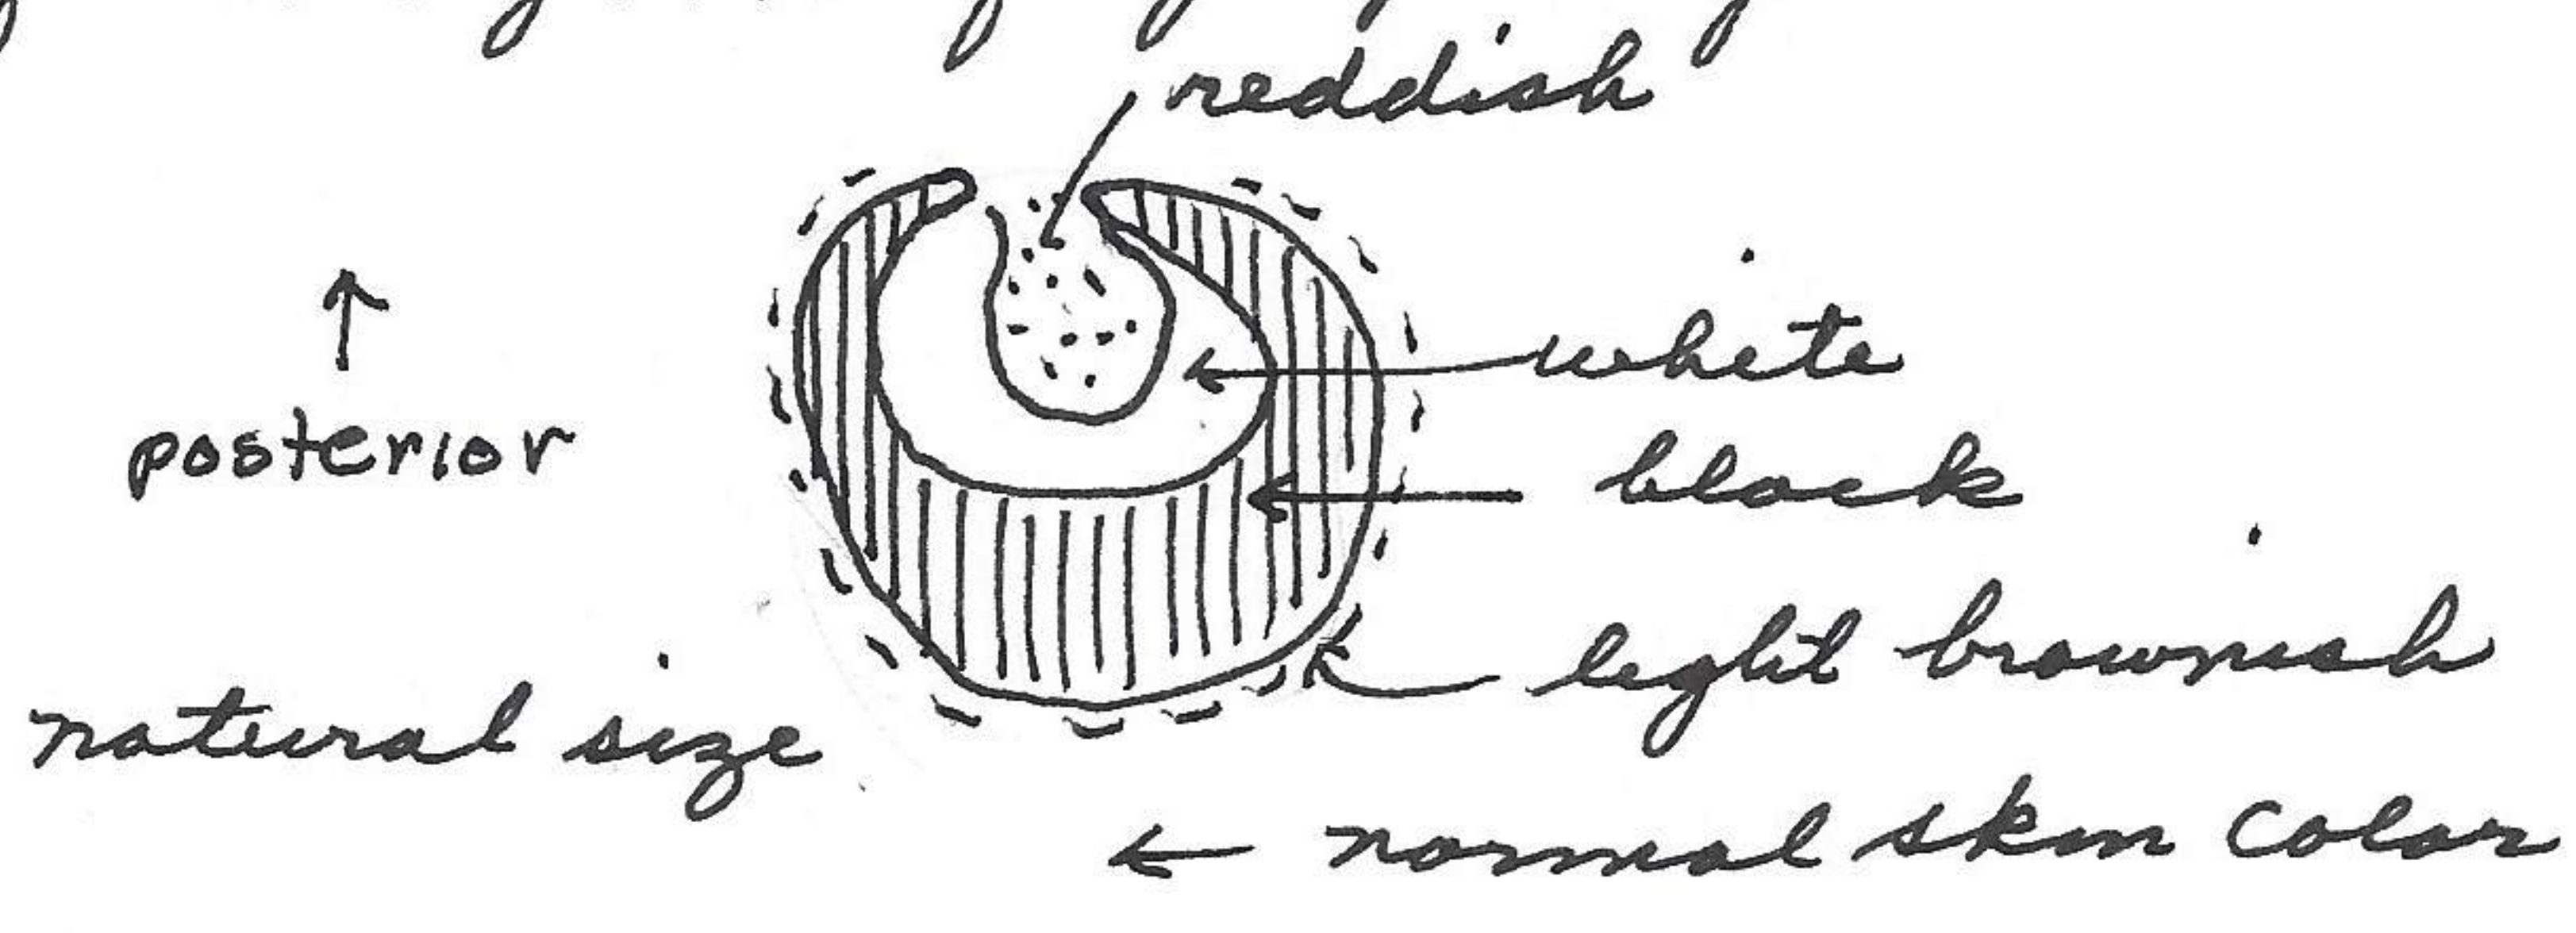 reddish
white
posterior
black
light brownish
natural size
normal skin color